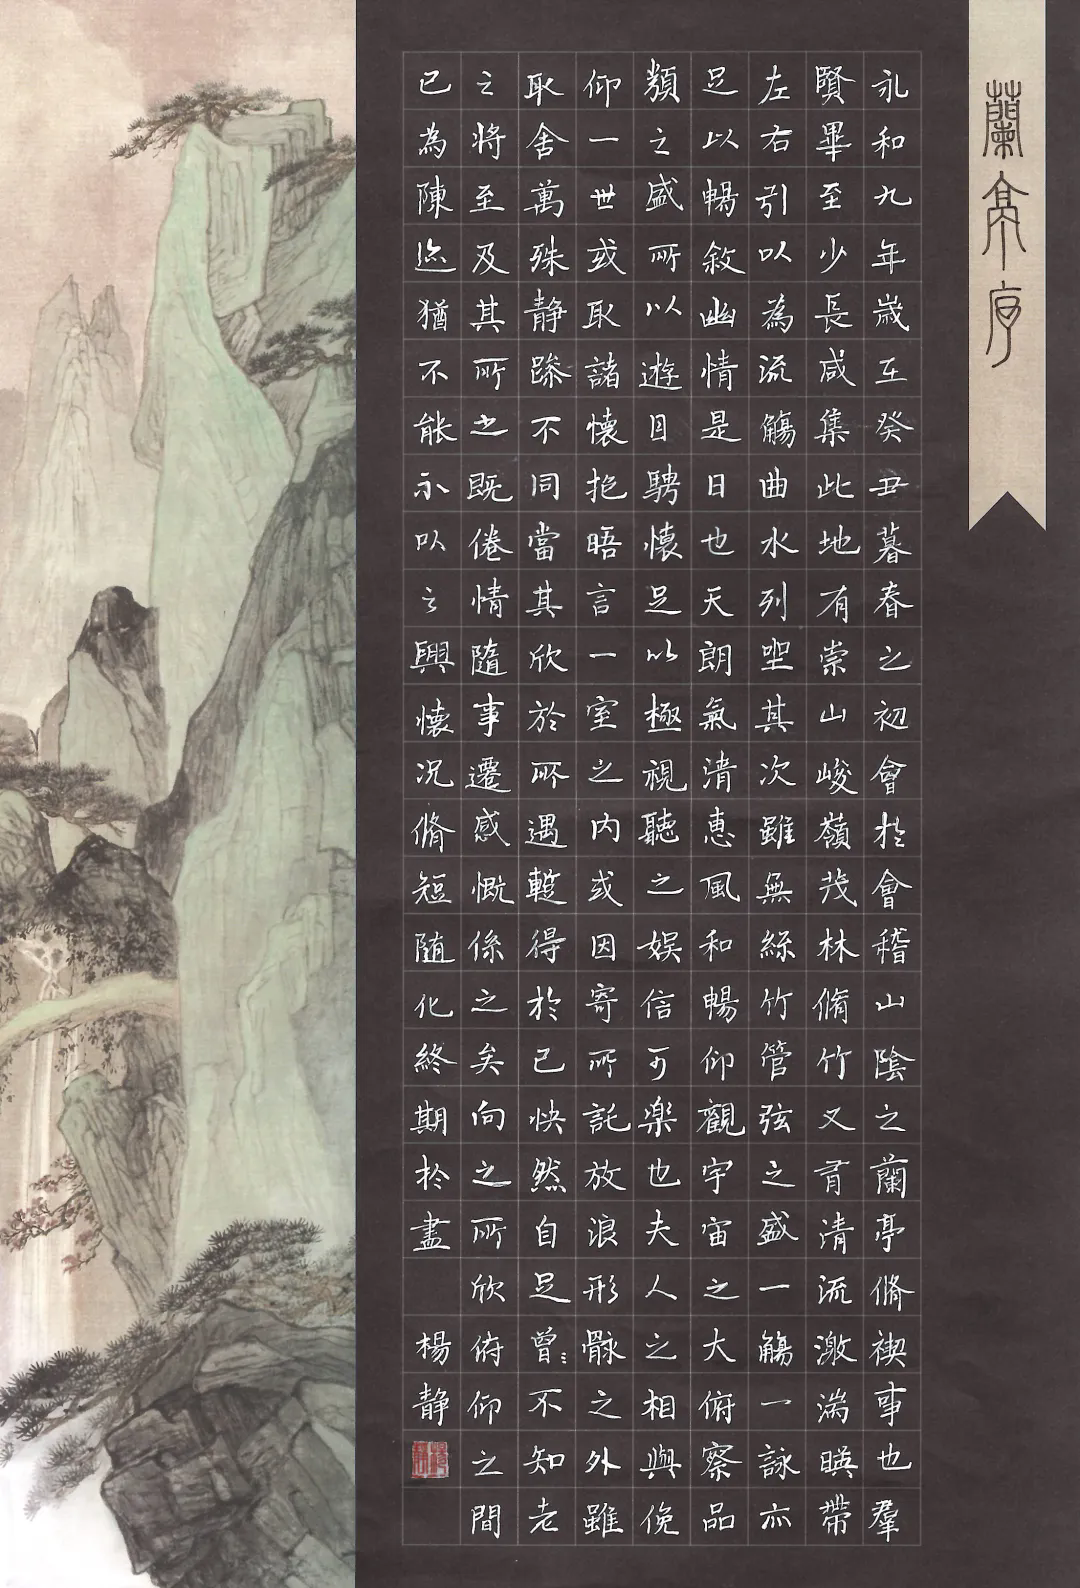 蘭亭序
永和九年歲在癸丑暮春之初會於會稽山陰之蘭亭脩禊事也羣
賢畢至少長咸集此地有崇山峻嶺茂林脩竹又有清流激湍暎帶
左右引以為流觴曲水列坐其次雖無絲竹管弦之盛一觴一詠亦
足以暢敘幽情是日也天朗氣清惠風和暢仰觀宇宙之大俯察品
類之盛所以遊目騁懷足以極視聽之娛信可樂也夫人之相與俛
仰一世或取諸懷抱晤言一室之内或因寄所託放浪形骸之外雖
取舍萬殊静躁不同當其欣於所遇蹔得於己快然自足曾不知老
之將至及其所之既倦情隨事遷感慨係之矣向之所欣俯仰之間
已為陳迹猶不能不以之興懷况脩短隨化終期於盡
楊静